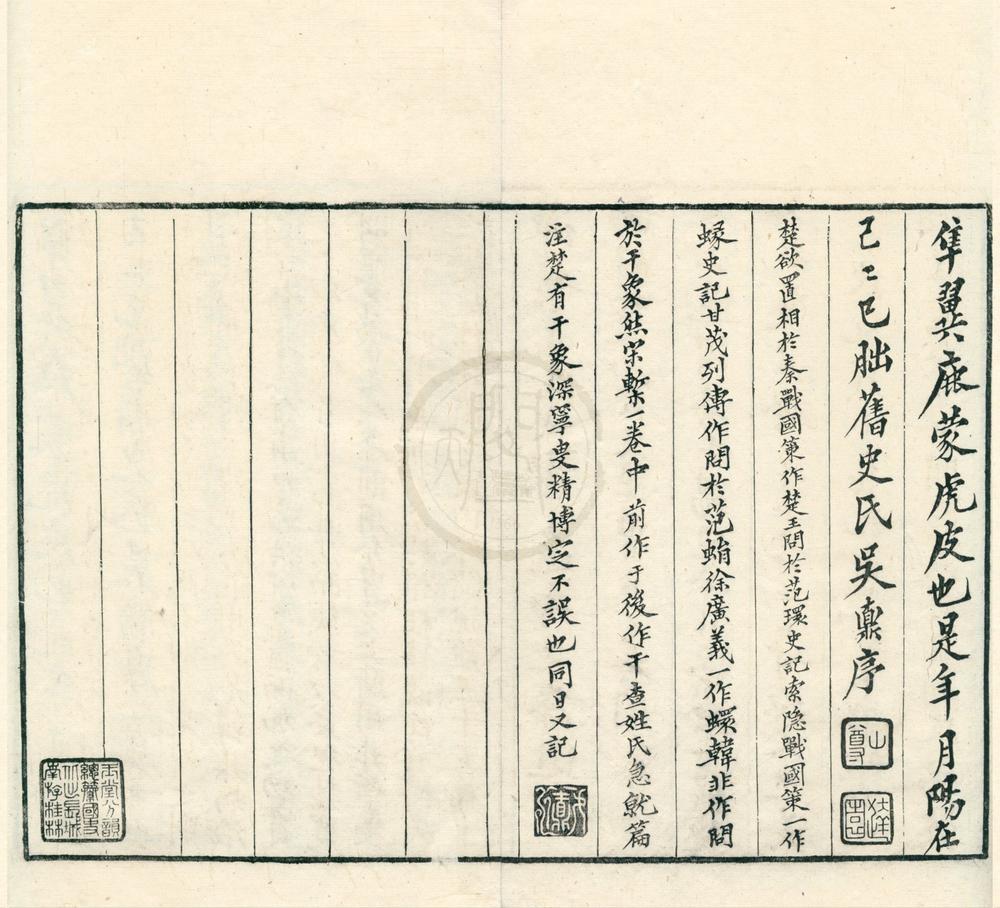 隼翼鹿蒙虎皮也是年月陽在
己二巳朏舊史氏吳鼒序
山尊
楚欲置相於秦戰國策作楚王問於范環史記索隱戰國策一作
蝝史記甘茂列傳作問於范蜎徐廣義一作蠉韓非作問
於干象然宋槧一卷中前作于後作干查姓氏急就篇
注楚有干象深寧叟精博定不誤也同日又記
玉堂分韻
總纂國史
北出長城
南存桂林